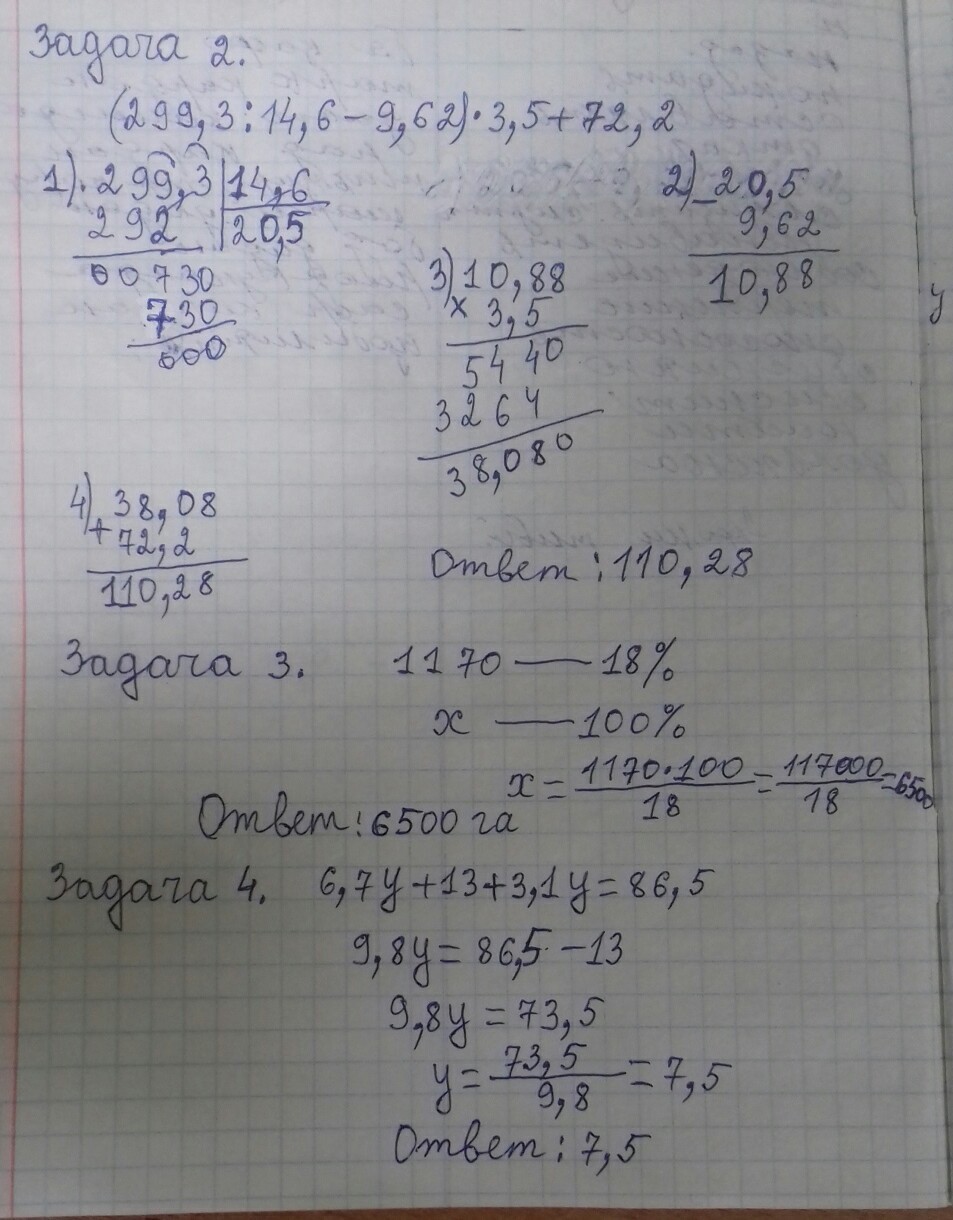 Задача 2.
(299,3:14,6-9,62)·3,5+72,2
1) 299,3 14,6
292 20,5
00730
730
000
2) - 20,5
9,62
10,88
3) 10,88
x 3,5
5440
3264
38,080
4) 38,08
+ 72,2
110,28
Ответ: 110,28
Задача 3. 1170 — 18%
x — 100%
x = 1170·100/18 = 117000/18 = 6500
Ответ: 6500 га
Задача 4. 6,7y+13+3,1y=86,5
9,8y=86,5-13
9,8y=73,5
y=73,5/9,8=7,5
Ответ: 7,5